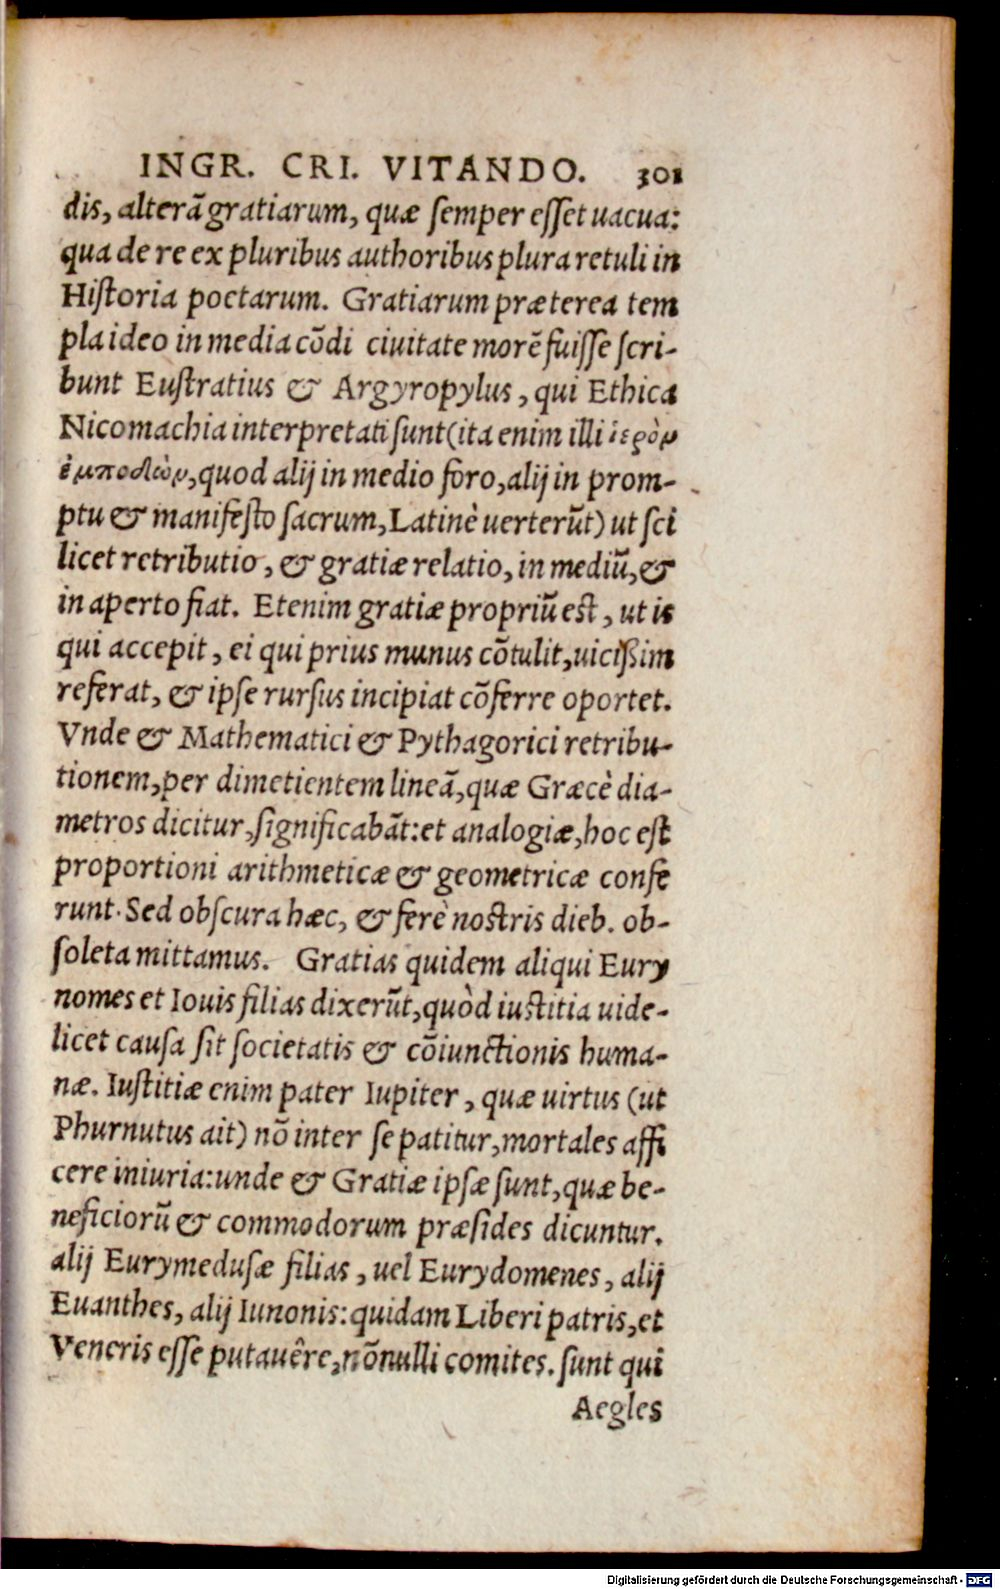 INGR. CRI. VITANDO. 301
dis, alterã gratiarum, quæ semper esset uacua:
qua de re ex pluribus authoribus plura retuli in
Historia poetarum. Gratiarum præterea tem
pla ideo in media cõdi ciuitate morẽ fuisse scri-
bunt Eustratius & Argyropylus, qui Ethica
Nicomachia interpretati sunt(ita enim illi ἱερὸν
ἐμποδὼν, quod alij in medio foro, alij in prom-
ptu & manifesto sacrum, Latinè uerterũt) ut sci
licet retributio, & gratiæ relatio, in mediũ, &
in aperto fiat. Etenim gratiæ propriũ est, ut is
qui accepit, ei qui prius munus cõtulit, uicißim
referat, & ipse rursus incipiat cõferre oportet.
Vnde & Mathematici & Pythagorici retribu-
tionem, per dimetientem lineã, quæ Græcè dia-
metros dicitur, significabãt: et analogiæ, hoc est
proportioni arithmeticæ & geometricæ confe
runt. Sed obscura hæc, & ferè nostris dieb. ob-
soleta mittamus. Gratias quidem aliqui Eury
nomes et Iouis filias dixerũt, quòd iustitia uide-
licet causa sit societatis & cõiunctionis huma-
næ. Iustitiæ enim pater Iupiter, quæ uirtus (ut
Phurnutus ait) nõ inter se patitur, mortales affi
cere iniuria: unde & Gratiæ ipsæ sunt, quæ be-
neficiorũ & commodorum præsides dicuntur.
alij Eurymedusæ filias, uel Eurydomenes, alij
Euanthes, alij Iunonis: quidam Liberi patris, et
Veneris esse putauêre, nõnulli comites. sunt qui
Aegles
Digitalisierung gefördert durch die Deutsche Forschungsgemeinschaft - DFG